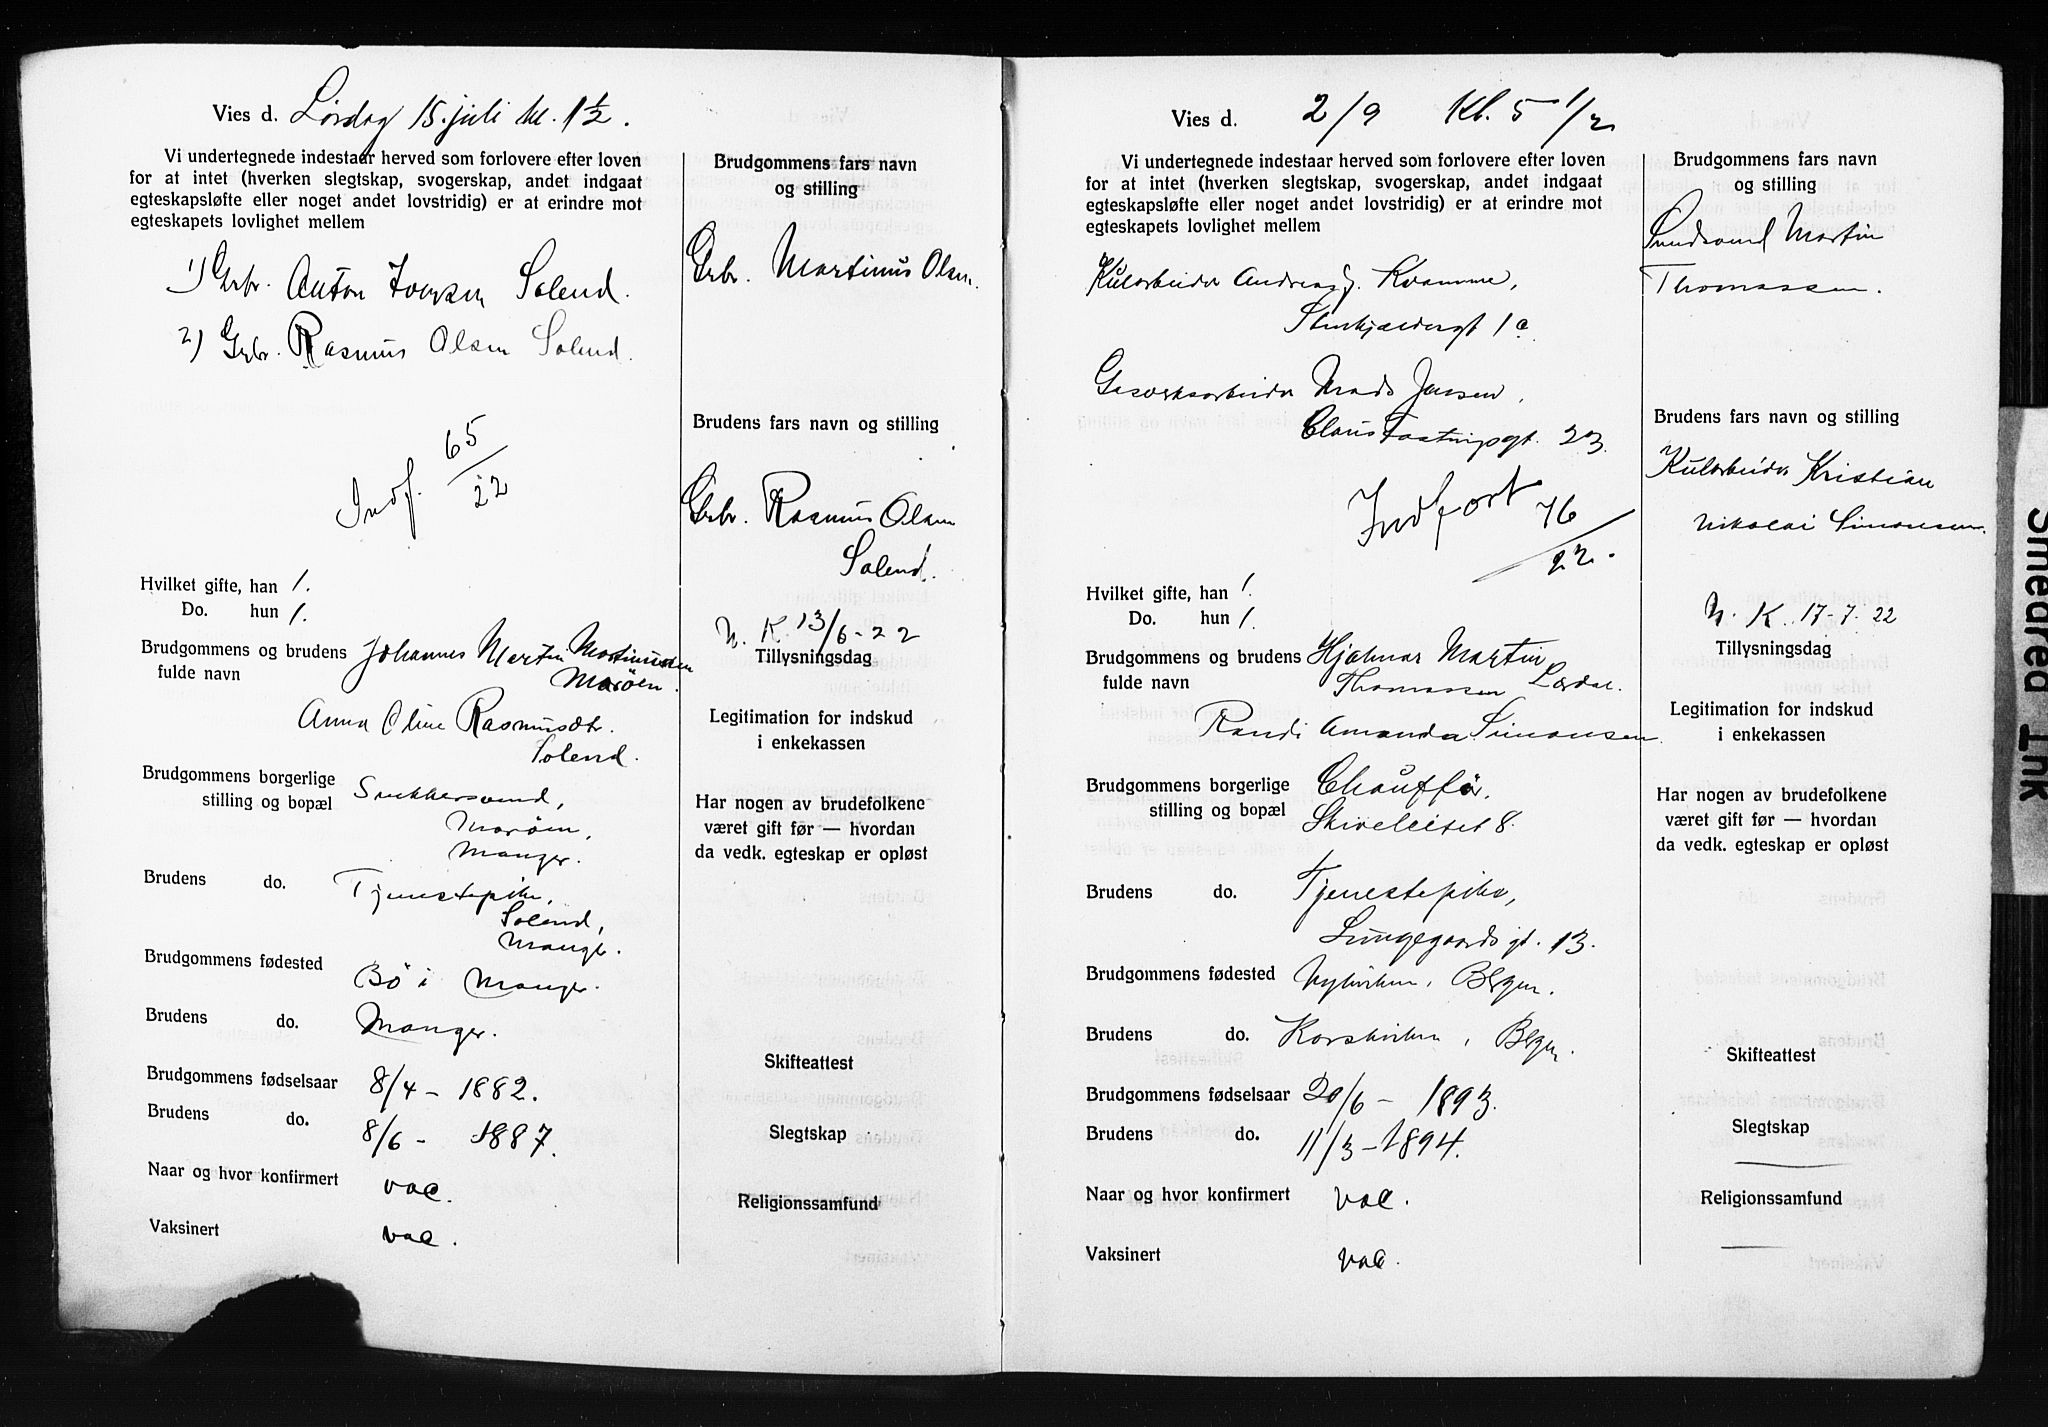 Vies d. Lørdag 15. juli kl. 1 1/2.
Vi undertegnede indestaar herved som forlovere efter loven
for at intet (hverken slegtskap, svogerskap, andet indgaat
egteskapsløfte eller noget andet lovstridig) er at erindre mot
egteskapets lovlighet mellem
1) Grbr. Anton Iversen Solend.
2) Grbr. Rasmus Olsen Solend.
Indf. 65/22
Hvilket gifte, han 1.
Do. hun 1.
Brudgommens og brudens Johannes Martin Martinussen
fulde navn Marøen.
Anna Oline Rasmusdtr.
Solend.
Brudgommens borgerlige
stilling og bopæl Snekkersvend,
Marøen,
Manger.
Brudens do. Tjenestepike,
Solend,
Manger.
Brudgommens fødested Bö i Manger.
Brudens do. Manger.
Brudgommens fødselsaar 8/4 - 1882.
Brudens do. 8/6 - 1887.
Naar og hvor konfirmert vac.
Vaksinert vac.
Brudgommens fars navn
og stilling
Grbr. Martinus Olsen.
Brudens fars navn og stilling
Grbr. Rasmus Olsen
Solend.
N. K. 13/6-22
Tillysningsdag
Legitimation for indskud
i enkekassen
Har nogen av brudefolkene
været gift før — hvordan
da vedk. egteskap er opløst
Skifteattest
Slegtskap
Religionssamfund
Vies d. 2/9 Kl. 5 1/2
Vi undertegnede indestaar herved som forlovere efter loven
for at intet (hverken slegtskap, svogerskap, andet indgaat
egteskapsløfte eller noget andet lovstridig) er at erindre mot
egteskapets lovlighet mellem
Kularbeider Andreas J. Kvamme,
1a.
Gasverksarbeider Mads Jansen,
Claus Faastingsgt. 23.
Indført 76/22.
Hvilket gifte, han 1.
Do. hun 1.
Brudgommens og brudens Hjalmar Martin
fulde navn Thomassen Lærdal.
Randi Amanda Simonsen.
Brudgommens borgerlige Chauffør,
stilling og bopæl Skivelleitet 8.
Brudens do. Tjenestepike,
Lungegaardsgt. 13.
Brudgommens fødested Nykirken, Bergen.
Brudens do. Korskirken, Bergen.
Brudgommens fødselsaar 20/6 - 1893.
Brudens do. 11/3 - 1894.
Naar og hvor konfirmert vac.
Vaksinert vac.
Brudgommens fars navn
og stilling
Martin
Thomassen.
Brudens fars navn og stilling
Kularbeider Kristian
Nikolai Simonsen.
N. K. 17-7-22
Tillysningsdag
Legitimation for indskud
i enkekassen
Har nogen av brudefolkene
været gift før — hvordan
da vedk. egteskap er opløst
Skifteattest
Slegtskap
Religionssamfund
Smeared Ink